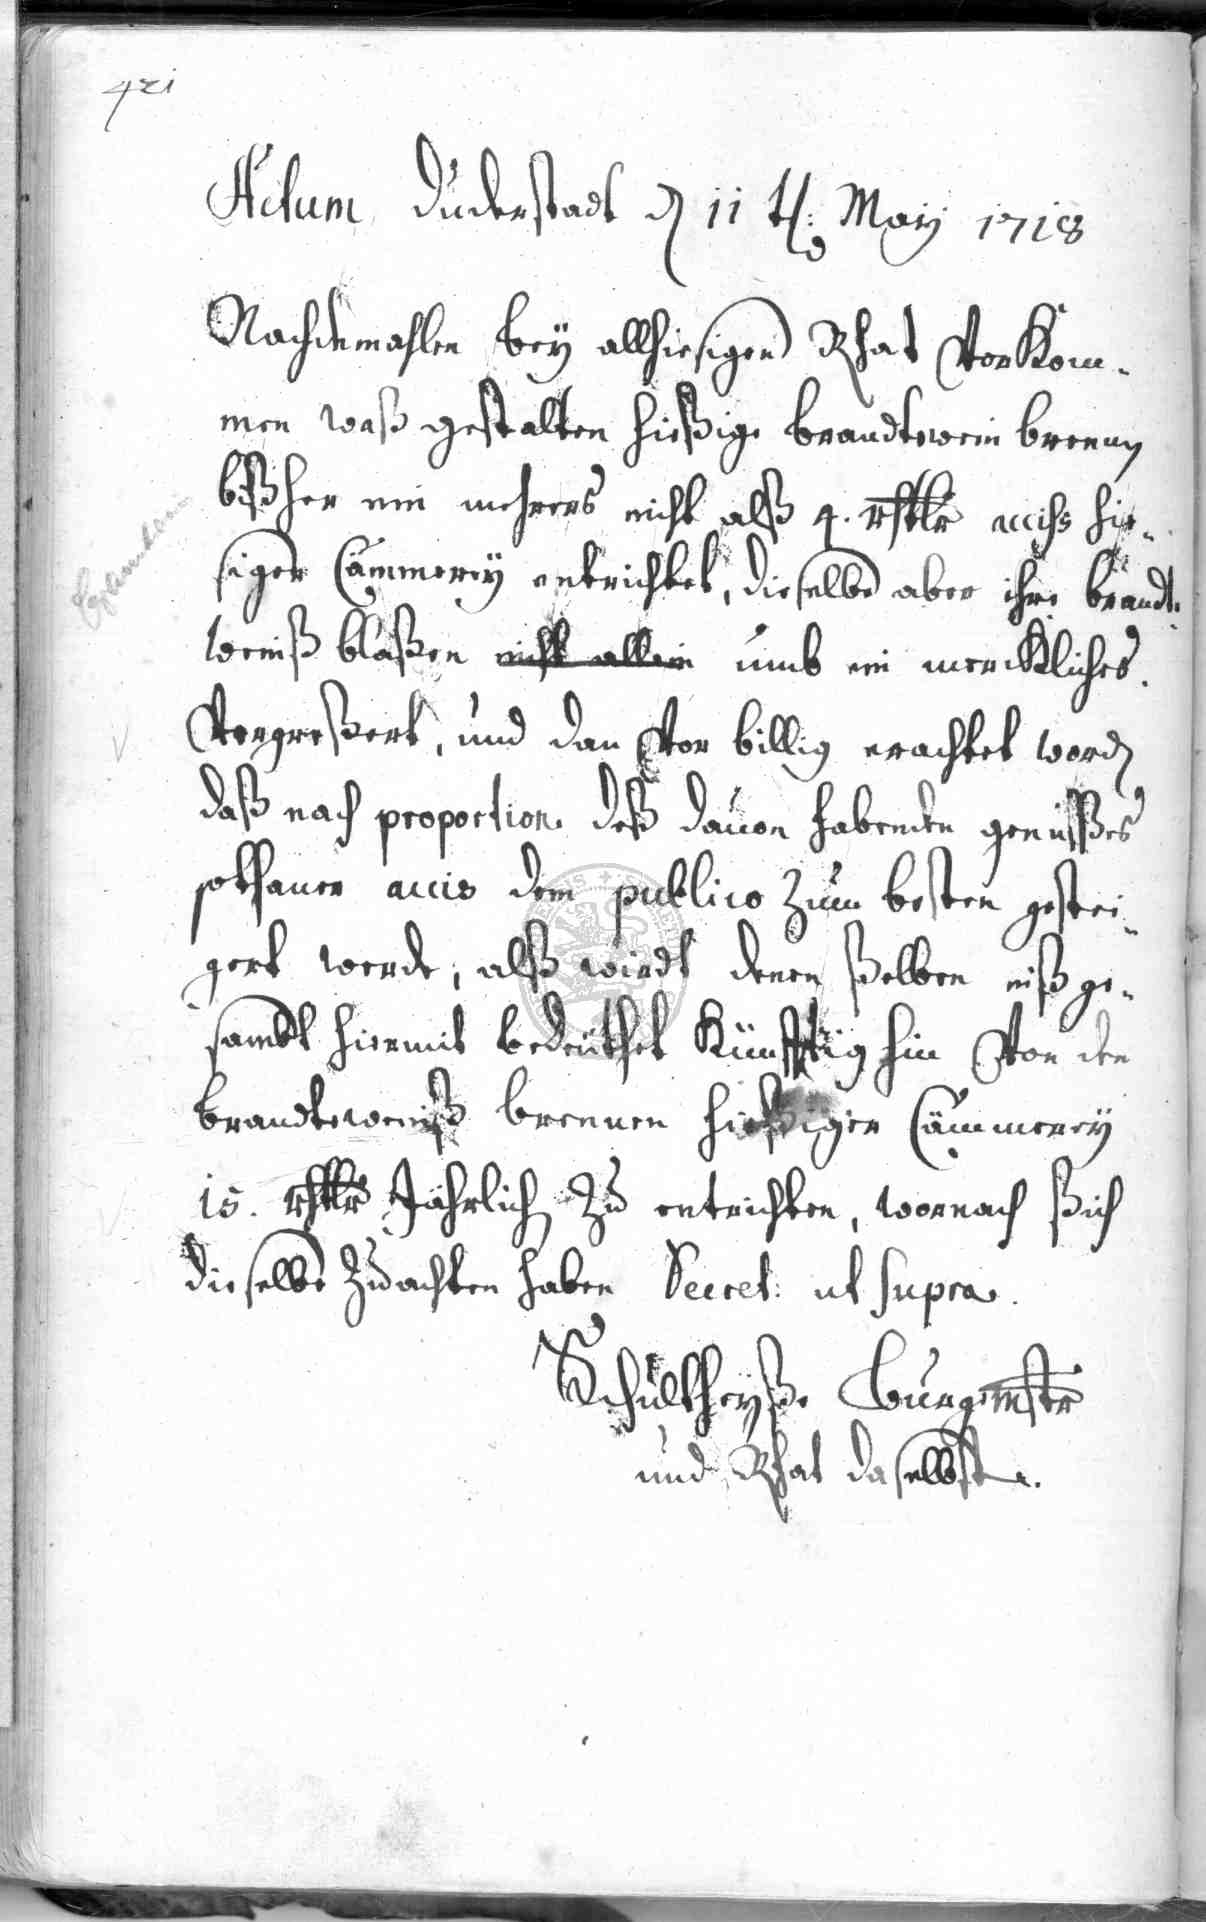 421
Actum Duderstadt d 11 t: May 1718
Nachdemahlen bey allhiesigen Rhat vorkom-
men waß gestalten hießige brandtwein brenn
bißher ein mehrers nicht alß 4. rthlr accihs hie-
siger Cämmerey entrichtet, dieselbe aber ihre brandt-
weinß blaßen nicht allein umb ein merckliches
Vergreßert, und dan vor billig erachtet word
daß nach proportion deß dauon habenden genußes
sothaner accis dem publico zum besten gestei-
gert werde, alß wirdt denen ßelben inßge-
sambt hiermit bedeuthet künfftig hin von den
brandteweinß brennen hießiger Cämmerey
15. rthlr Jährlich zu entrichten, wornach ßich
dieselbe zu achten haben Decret: ut supra.
Schultheyße Burgemstr
und Rhat daselbsten.